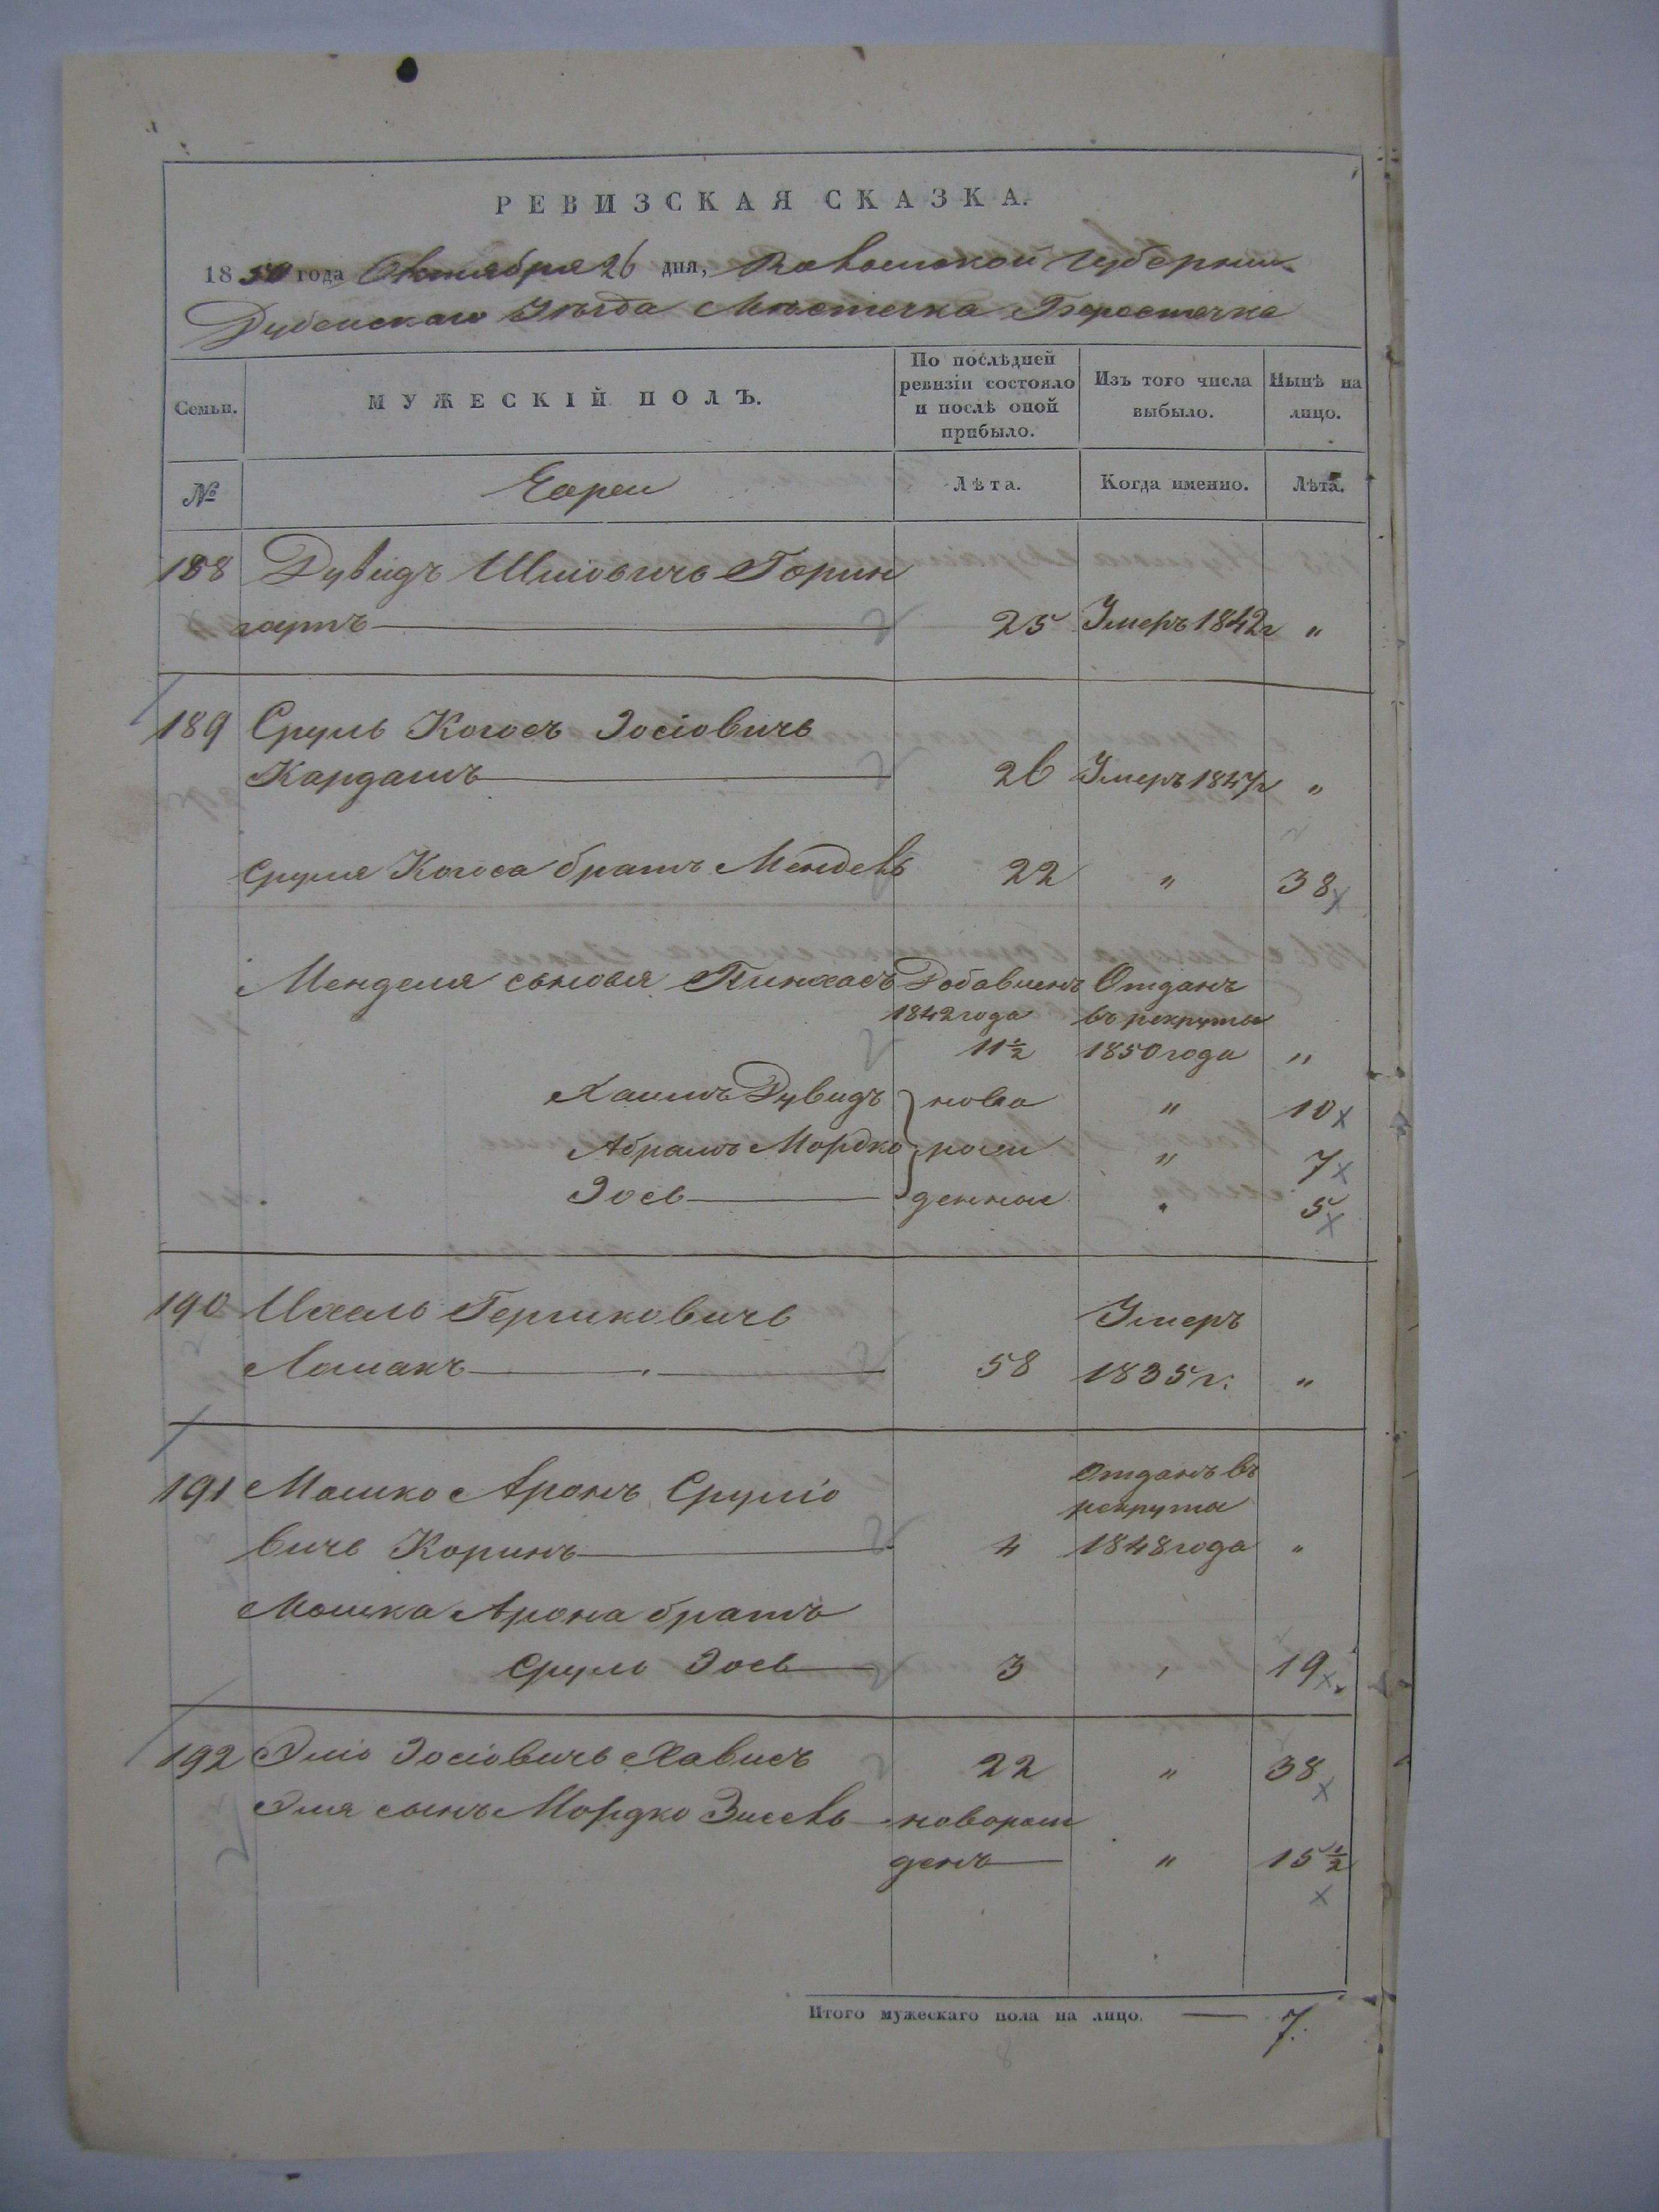 РЕВИЗСКАЯ СКАЗКА.
1850 года Октября 26 дня, Волынской Губернии
Дубенскаго Уѣзда Мѣстечка Берестечка
Семьи.
МУЖЕСКІЙ ПОЛЪ.
По послѣдней ревизіи состояло и послѣ оной прибыло.
Изъ того числа выбыло.
Нынѣ на лицо.
№
Евреи
Лѣта.
Когда именно.
Лѣта.
188 Дувидъ Шліовичь Горин
гартъ 25 Умеръ 1842г "
189 Сруль Когосъ Іосіовичь
Кардашъ 26 Умеръ 1847г "
Сруля Когоса братъ Мендель 22 " 38
Менделя сыновья Пинхасъ Добавленъ Отданъ
1842 года въ рекруты
11½ 1850 года "
Хаимъ Дувидъ ново " 10
Абрамъ Мордко рож " 7
Іось денные " 5
190 Ихель Гершковичь Умеръ
Ломакъ 58 1835 г. "
191 Мошко Аронъ Сруліо Отданъ въ
рекруты
вичь Коринъ 4 1848 года "
Мошка Арона братъ
Сруль Іось 3 " 19
192 Эліо Іосіовичь Хависъ 22 " 38
Эля сынъ Мордко Зисель новорож
денъ " 15½
Итого мужескаго пола на лицо. — 7.
8